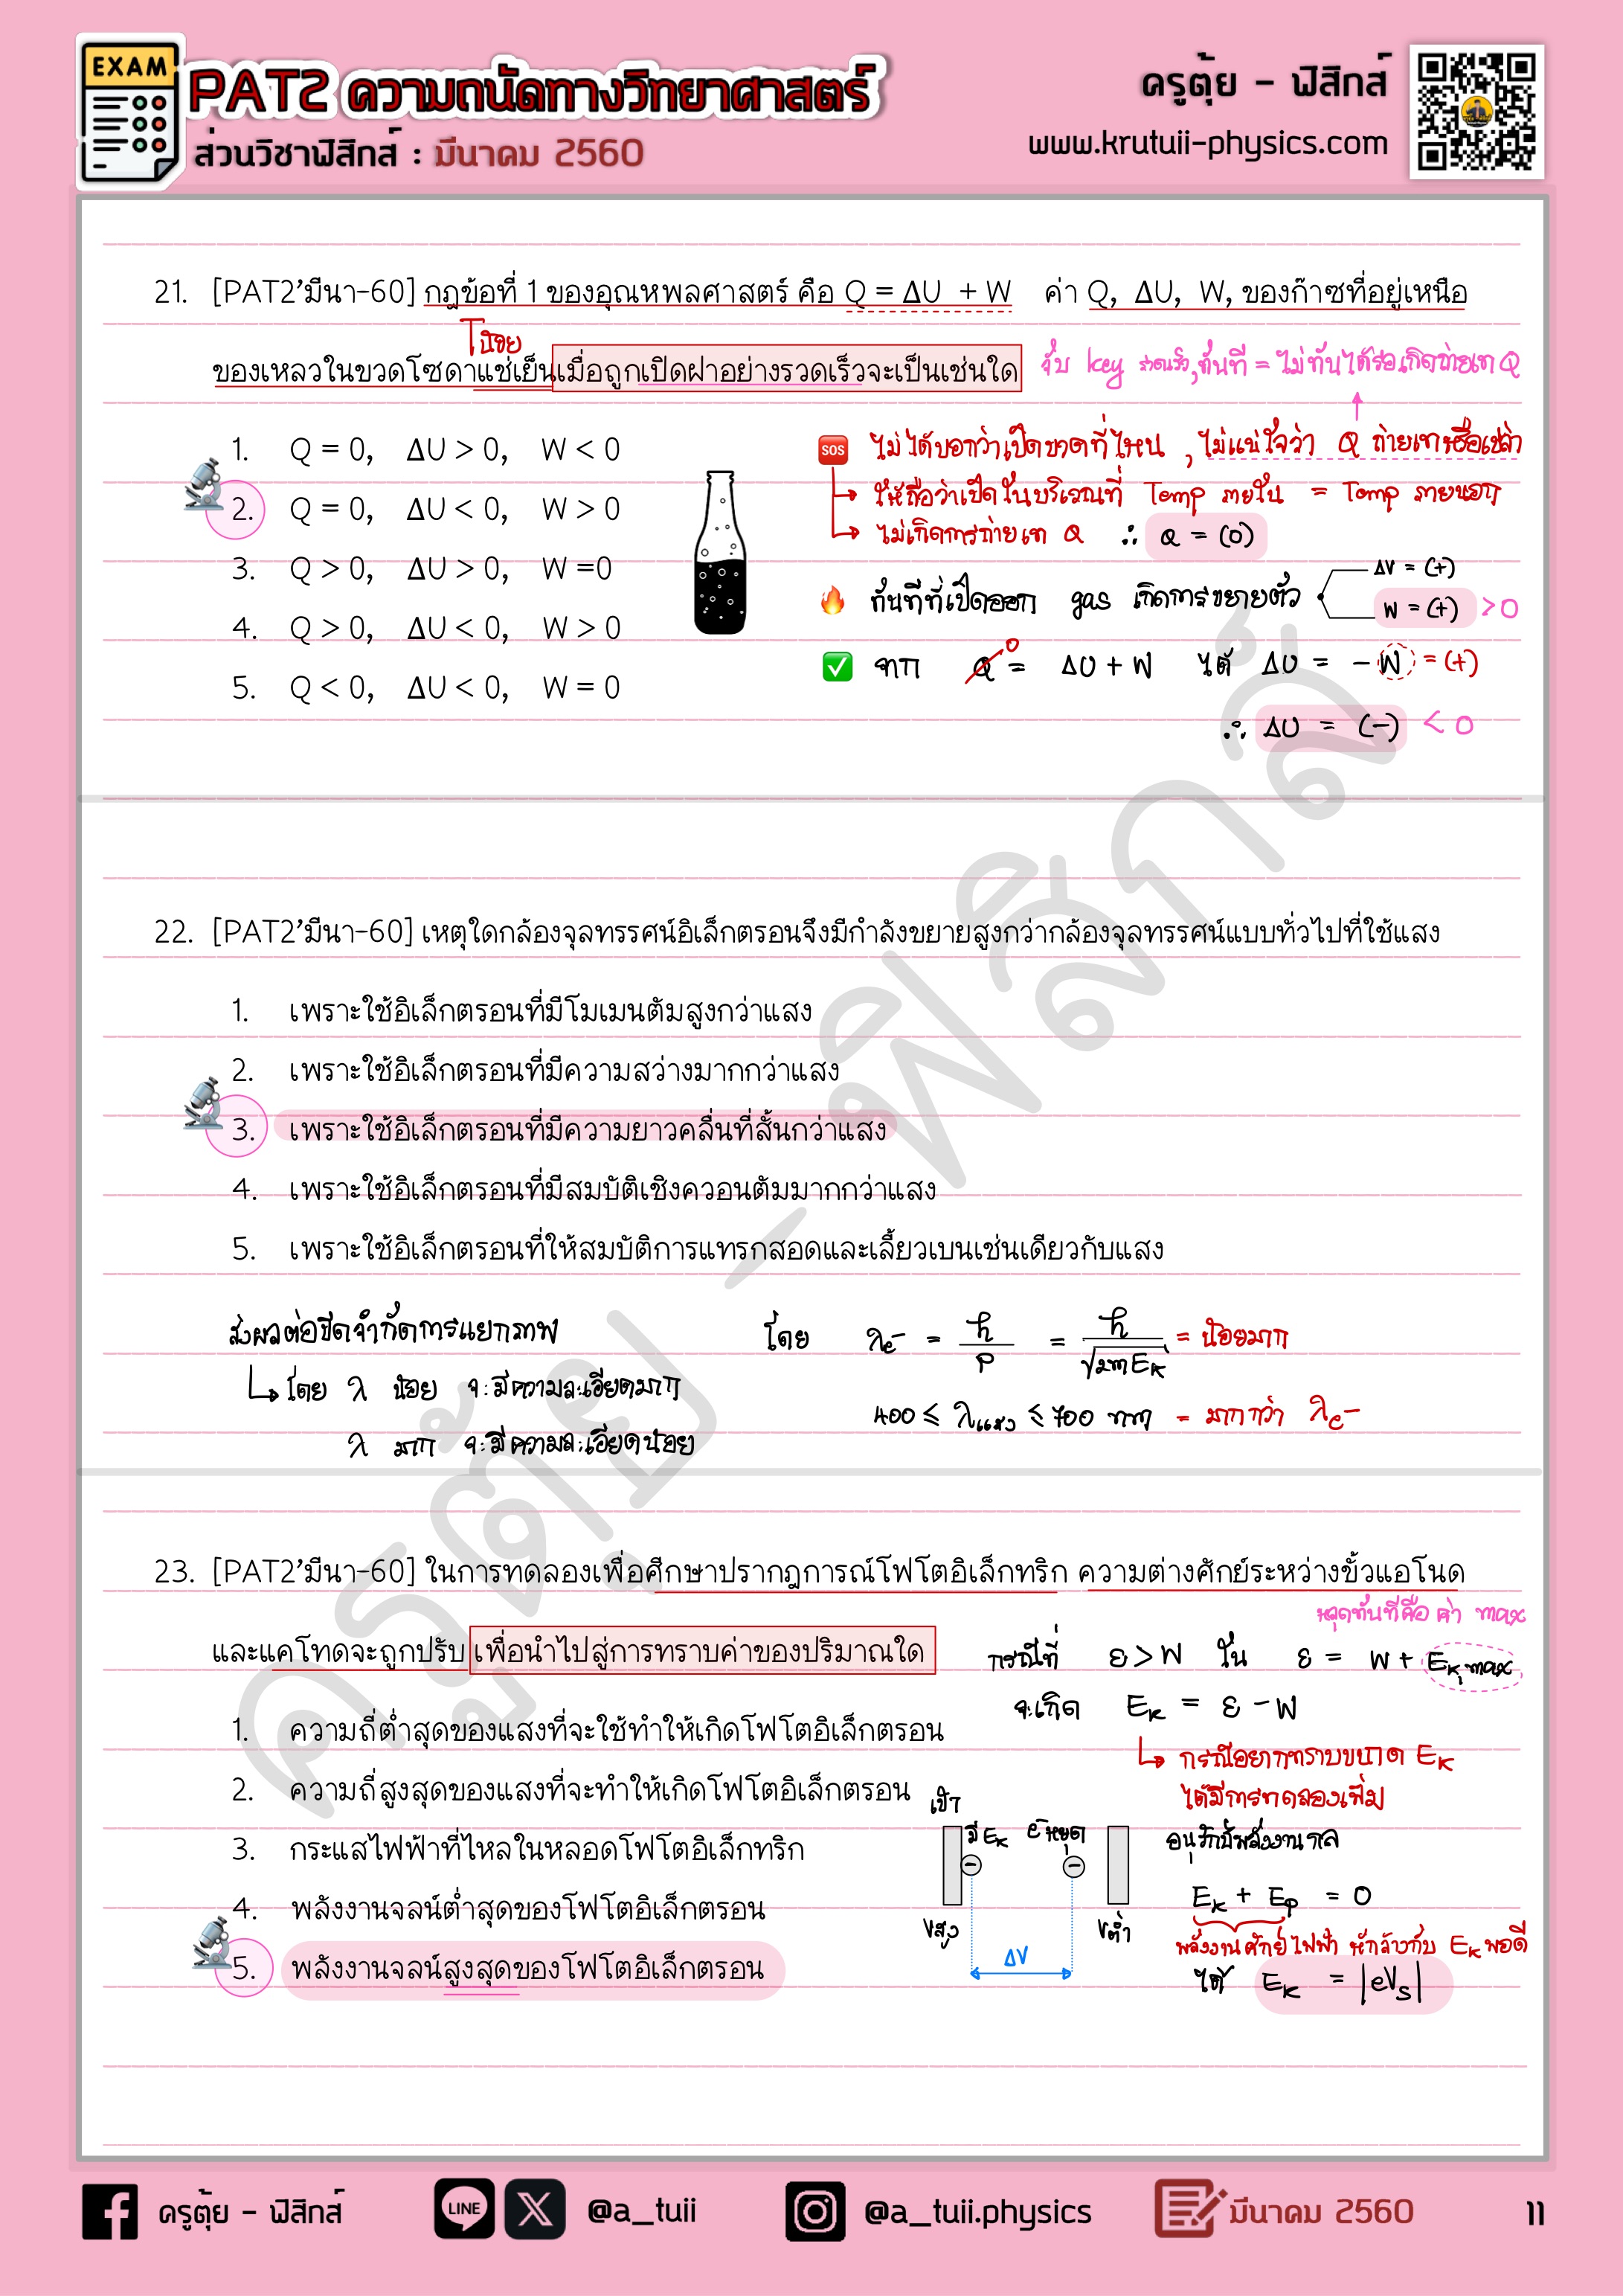 EXAM
PAT2 ความถนัดทางวิทยาศาสตร์
ส่วนวิชาฟิสิกส์ : มีนาคม 2560
ครูตุ้ย - ฟิสิกส์
www.krutuii-physics.com
21. [PAT2'มีนา-60] กฎข้อที่ 1 ของอุณหพลศาสตร์ คือ Q = ΔU + W ค่า Q, ΔU, W, ของก๊าซที่อยู่เหนือ
T น้อย
ของเหลวในขวดโซดาแช่เย็นเมื่อถูกเปิดฝาอย่างรวดเร็วจะเป็นเช่นใด
จับ key รวดเร็ว, ทันที = ไม่ทันได้รอเกิดถ่ายเท Q
1. Q = 0, ΔU > 0, W < 0
2. Q = 0, ΔU < 0, W > 0
3. Q > 0, ΔU > 0, W =0
4. Q > 0, ΔU < 0, W > 0
5. Q < 0, ΔU < 0, W = 0
SOS ไม่ได้บอกว่าเปิดขวดที่ไหน , ไม่แน่ใจว่า Q ถ่ายเทหรือเปล่า
ให้ถือว่าเปิดในบริเวณที่ Temp ภายใน = Temp ภายนอก
ไม่เกิดการถ่ายเท Q ∴ Q = (0)
ทันทีที่เปิดออก gas เกิดการขยายตัว
ΔV = (+)
W = (+) > 0
จาก Q = ΔU + W ได้ ΔU = - W = (+)
0
∴ ΔU = (-) < 0
22. [PAT2'มีนา-60] เหตุใดกล้องจุลทรรศน์อิเล็กตรอนจึงมีกำลังขยายสูงกว่ากล้องจุลทรรศน์แบบทั่วไปที่ใช้แสง
1. เพราะใช้อิเล็กตรอนที่มีโมเมนตัมสูงกว่าแสง
2. เพราะใช้อิเล็กตรอนที่มีความสว่างมากกว่าแสง
3. เพราะใช้อิเล็กตรอนที่มีความยาวคลื่นที่สั้นกว่าแสง
4. เพราะใช้อิเล็กตรอนที่มีสมบัติเชิงควอนตัมมากกว่าแสง
5. เพราะใช้อิเล็กตรอนที่ให้สมบัติการแทรกสอดและเลี้ยวเบนเช่นเดียวกับแสง
ส่งผลต่อขีดจำกัดการแยกภาพ
โดย λ น้อย จะมีความละเอียดมาก
λ มาก จะมีความละเอียดน้อย
โดย λe- = h/P = h/√2mEK = น้อยมาก
400 ≤ λแสง ≤ 700 nm = มากกว่า λe-
23. [PAT2'มีนา-60] ในการทดลองเพื่อศึกษาปรากฎการณ์โฟโตอิเล็กทริก ความต่างศักย์ระหว่างขั้วแอโนด
และแคโทดจะถูกปรับ เพื่อนำไปสู่การทราบค่าของปริมาณใด
1. ความถี่ต่ำสุดของแสงที่จะใช้ทำให้เกิดโฟโตอิเล็กตรอน
2. ความถี่สูงสุดของแสงที่จะทำให้เกิดโฟโตอิเล็กตรอน
3. กระแสไฟฟ้าที่ไหลในหลอดโฟโตอิเล็กทริก
4. พลังงานจลน์ต่ำสุดของโฟโตอิเล็กตรอน
5. พลังงานจลน์สูงสุดของโฟโตอิเล็กตรอน
หลุดทันทีคือ ค่า max
กรณีที่ ε > W ใน ε = W + EK,max
จะเกิด EK = ε - W
กรณีอยากทราบขนาด EK
ได้มีการทดลองเพิ่ม
อนุรักษ์พลังงานกล
EK + EP = 0
พลังงานศักย์ไฟฟ้า หักล้างกับ EK พอดี
ได้ EK = |eVs|
เป้า
มี EK
e- หยุด
Vสูง
Vต่ำ
ΔV
ครูตุ้ย - ฟิสิกส์
ครูตุ้ย - ฟิสิกส์
LINE
@a_tuii
@a_tuii.physics
มีนาคม 2560
11